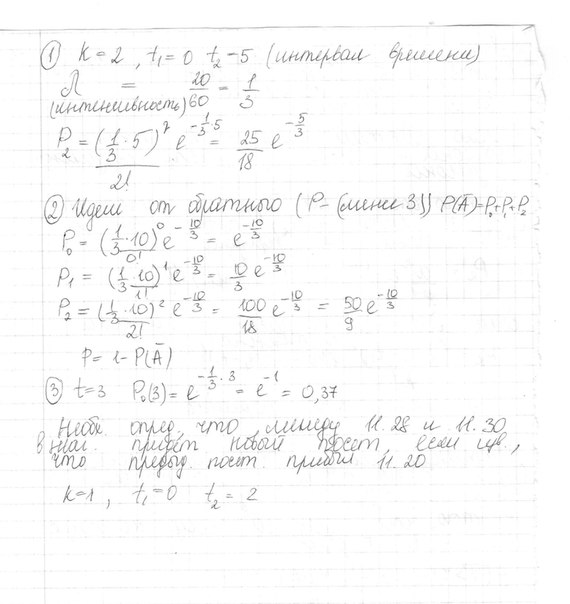 ① k=2, t₁=0 t₂-5 (интервал времени)
Λ = 20/60 = 1/3
(интенсивность)
P₂ = (1/3 · 5)²/2! e^(-1/3 5) = 25/18 e^(-5/3)
② Идем от обратного (P- (менее 3)) P(Ā)=P₀+P₁+P₂
P₀ = (1/3 · 10)⁰/0! e^(-10/3) = e^(-10/3)
P₁ = (1/3 · 10)¹/1! e^(-10/3) = 10/3 e^(-10/3)
P₂ = (1/3 · 10)²/2! e^(-10/3) = 100/18 e^(-10/3) = 50/9 e^(-10/3)
P = 1 - P(Ā)
③ t=3 P₀(3) = e^(-1/3 · 3) = e^(-1) = 0,37
опред. что между 11.28 и 11.30
в маг. придёт новый если
что предыд. посет. прибыл 11.20
k=1, t₁=0 t₂ = 2